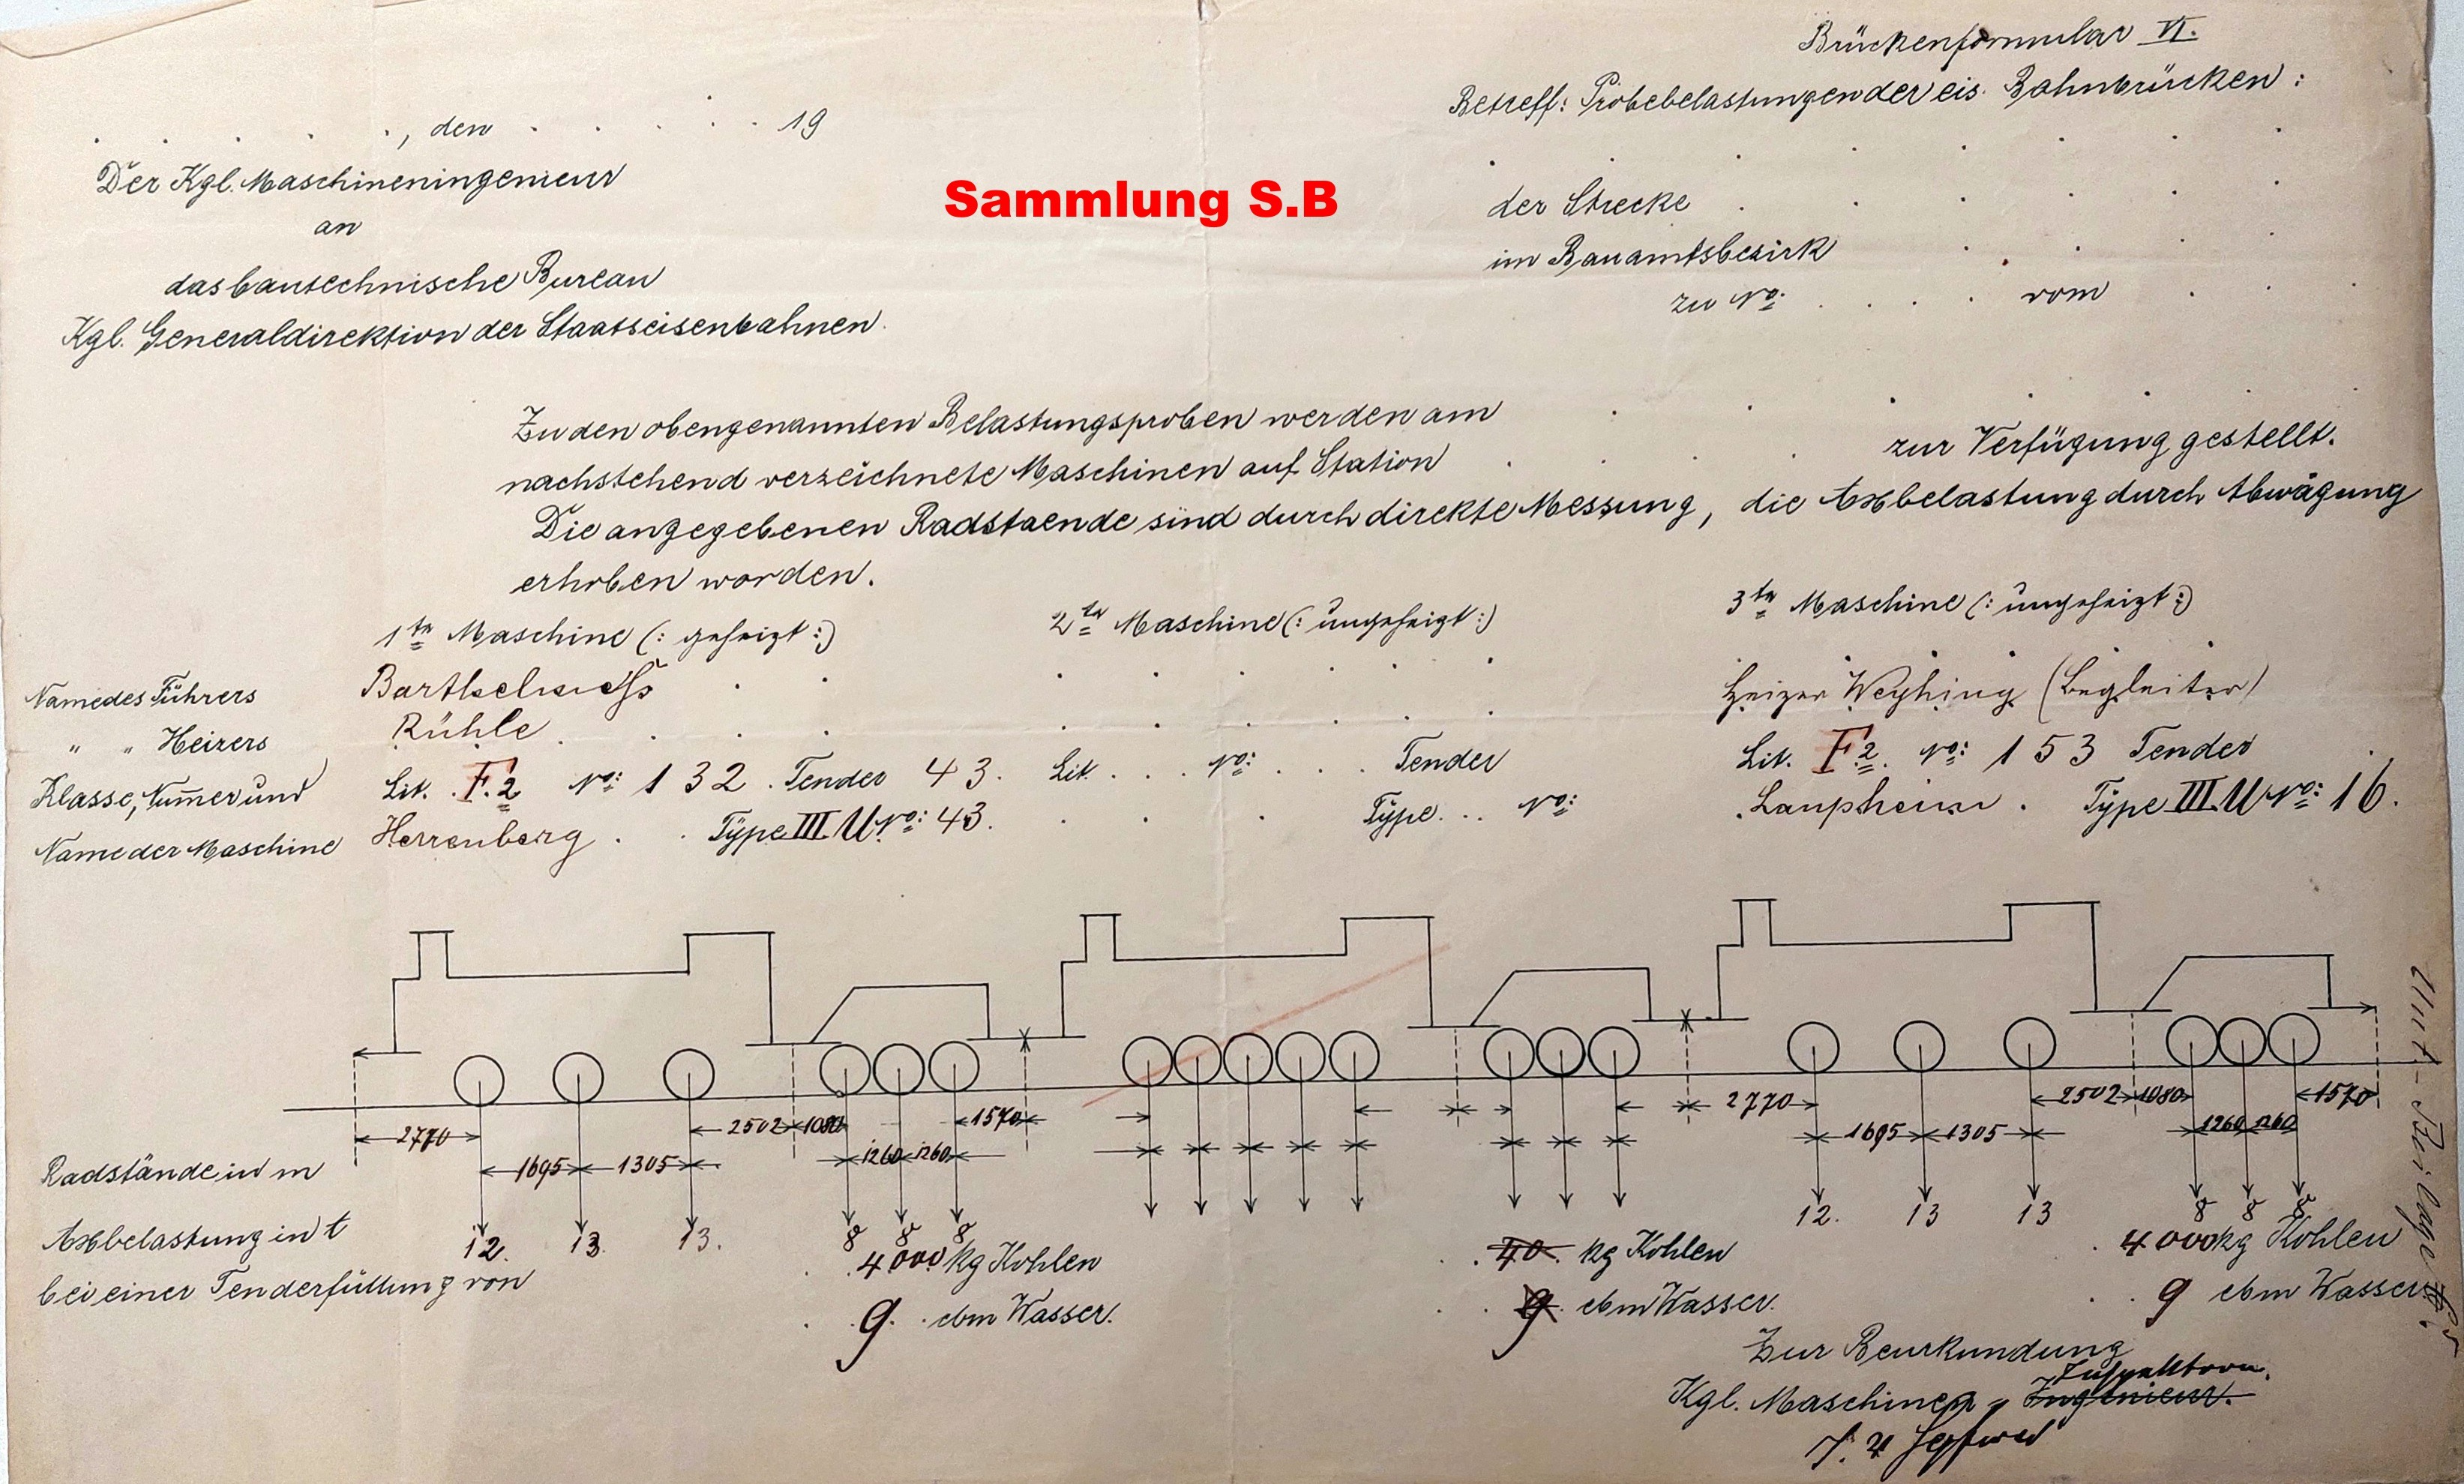 Brückenformular VI.
Betreff: Probebelastungen der eis. Bahnbrücken:
, den 19
Der Kgl. Maschineningenieur
an
das bautechnische Bureau
Kgl. Generaldirektion der Staatseisenbahnen.
Sammlung S.B
der Strecke
im Bauamtsbezirk
zu No: vom
Zu den obengenannten Belastungsproben werden am
nachstehend verzeichnete Maschinen auf Station zur Verfügung gestellt.
Die angegebenen Radstaende sind durch direkte Messung, die Axbelastung durch Abwägung
erhoben worden.
1te Maschine (: geheizt :) 2te Maschine (: ungeheizt :) 3te Maschine (: ungeheizt :)
Name des Führers Barthelmeß Heizer Weyhing (Begleiter)
" " Heizers Rühle
Klasse, Nummer und Lit. F.2 No: 132 Tender 43. Lit. No: Tender Lit. F2. No: 153 Tender
Name der Maschine Herrenberg Type III U No: 43. Type No: Laupheim. Type III U No: 16.
2770 2502 1080 1570 2770 2502 1080 1570
1695 1305 1260 1260 1695 1305 1260 1260
Radstände in m
Axbelastung in t 12. 13. 13. 8 8 8 12. 13 13 8 8 8
bei einer Tenderfüllung von 4000 kg Kohlen 40 kg Kohlen 4000 kg Kohlen
9. cbm Wasser. 9 cbm Wasser. 9 cbm Wasser.
Zur Beurkundung
Kgl. Maschinen- Ingenieur.